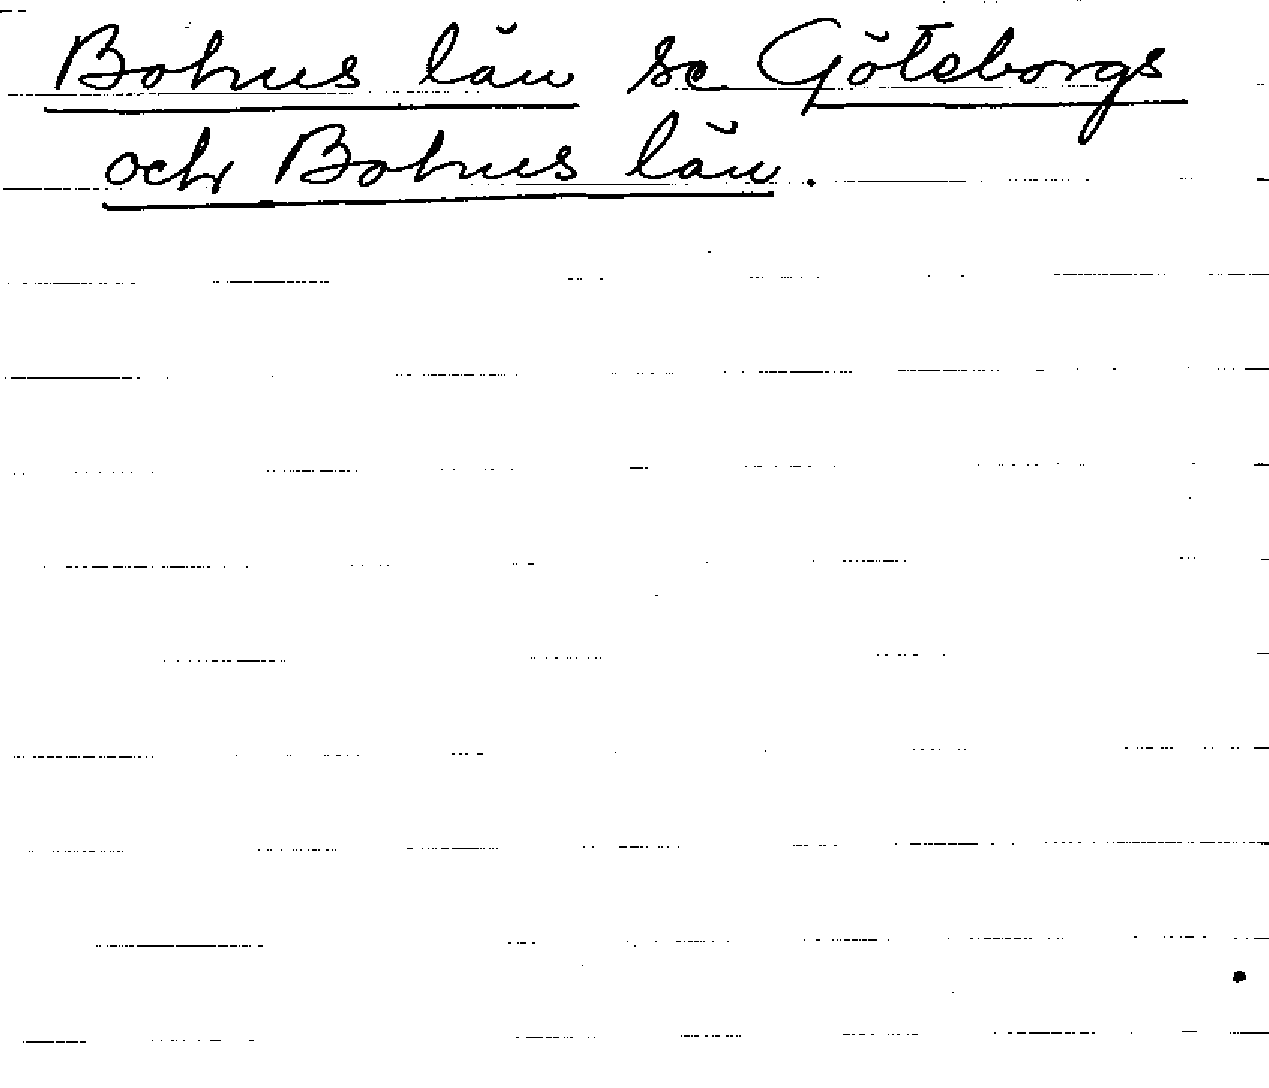 Bohus län se Göteborgs
och Bohus län.